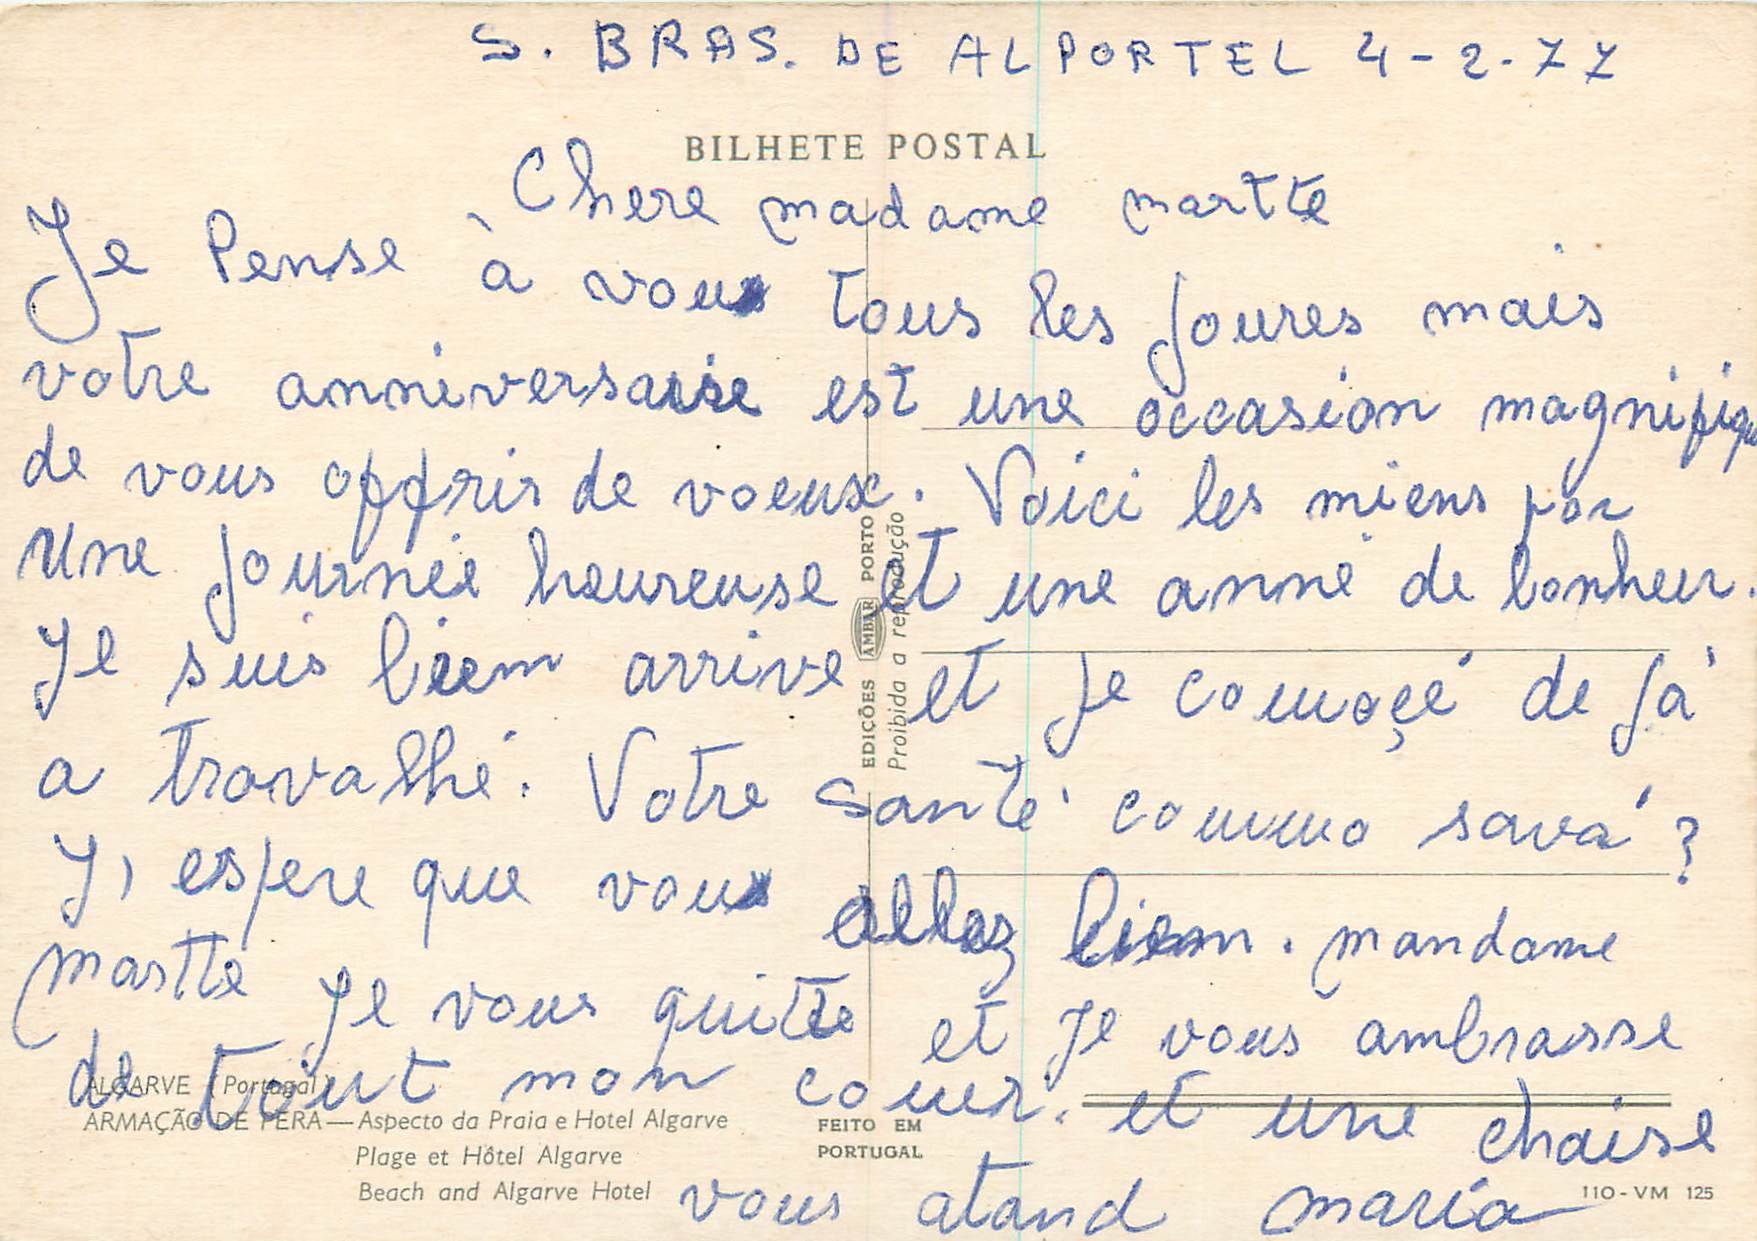 S. BRAS. DE ALPORTEL 4-2-77
BILHETE POSTAL
Chere madame martte
Je Pense à vous tous les joures mais
votre anniversaire est une occasion magnifique
de vous offrir de voeux. Voici les miens por
une journée heureuse et une anné de bonheur.
Je suis biem arrive et je comoçé de já
a travalhé. Votre santé commo sava ?
J, espere que vous allez biem. mandame
martte Je vous quitte et Je vous ambrasse
de tout mon couer. et une chaise
vous atand maria
EDIÇÕES AMBAR PORTO
Proibida a reprodução
ALGARVE (Portugal)
ARMAÇÃO DE PERA — Aspecto da Praia e Hotel Algarve
Plage et Hôtel Algarve
Beach and Algarve Hotel
FEITO EM
PORTUGAL
110 - VM 125